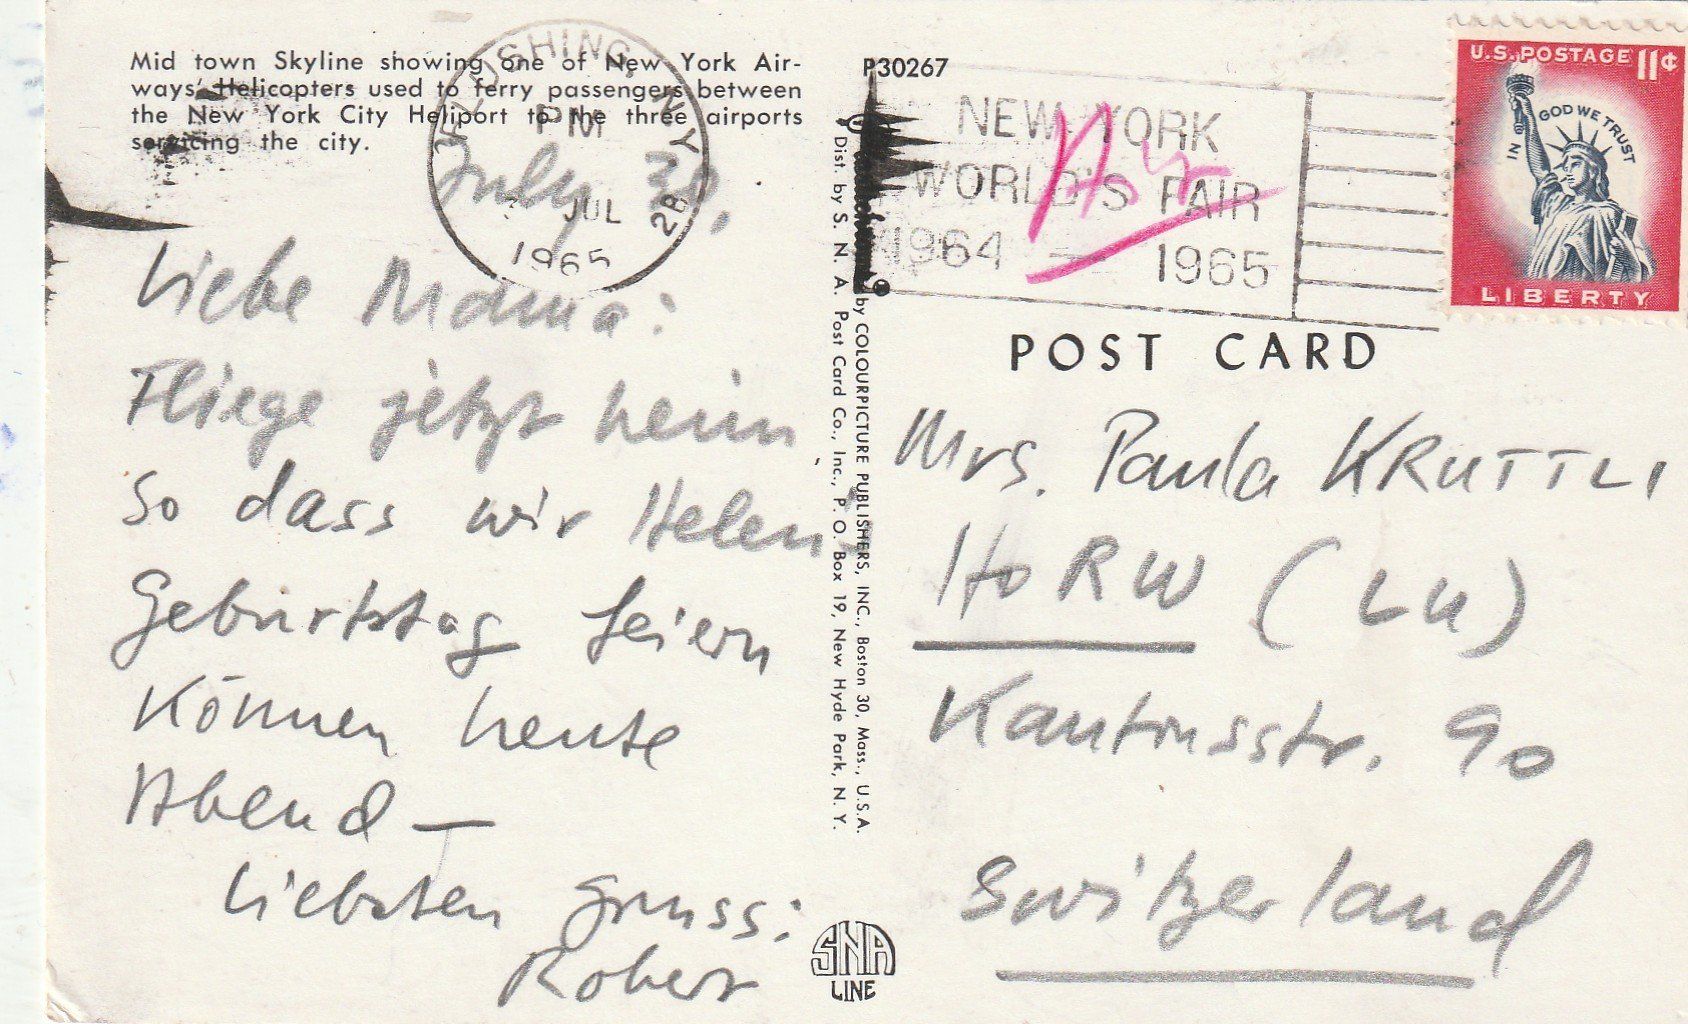 Mid town Skyline showing one of New York Air-
ways' Helicopters used to ferry passengers between
the New York City Heliport to the three airports
servicing the city.
July 28,
Liebe Mama:
Fliege jetzt heim
so dass wir Helen's
Geburtstag feiern
können heute
Abend —
Liebsten Gruss:
Robert
P30267
FLUSHING, N.Y.
PM
JUL
28
1965
NEW YORK
WORLD'S FAIR
1964 — 1965
Air
U.S. POSTAGE 11¢
IN GOD WE TRUST
LIBERTY
by COLOURPICTURE PUBLISHERS, INC., Boston 30, Mass., U.S.A.
Dist. by S. N. A. Post Card Co., Inc., P. O. Box 19, New Hyde Park, N. Y.
POST CARD
Mrs. Paula KRUTTLI
HORW (LU)
Kantonsstr. 90
Switzerland
SNA
LINE